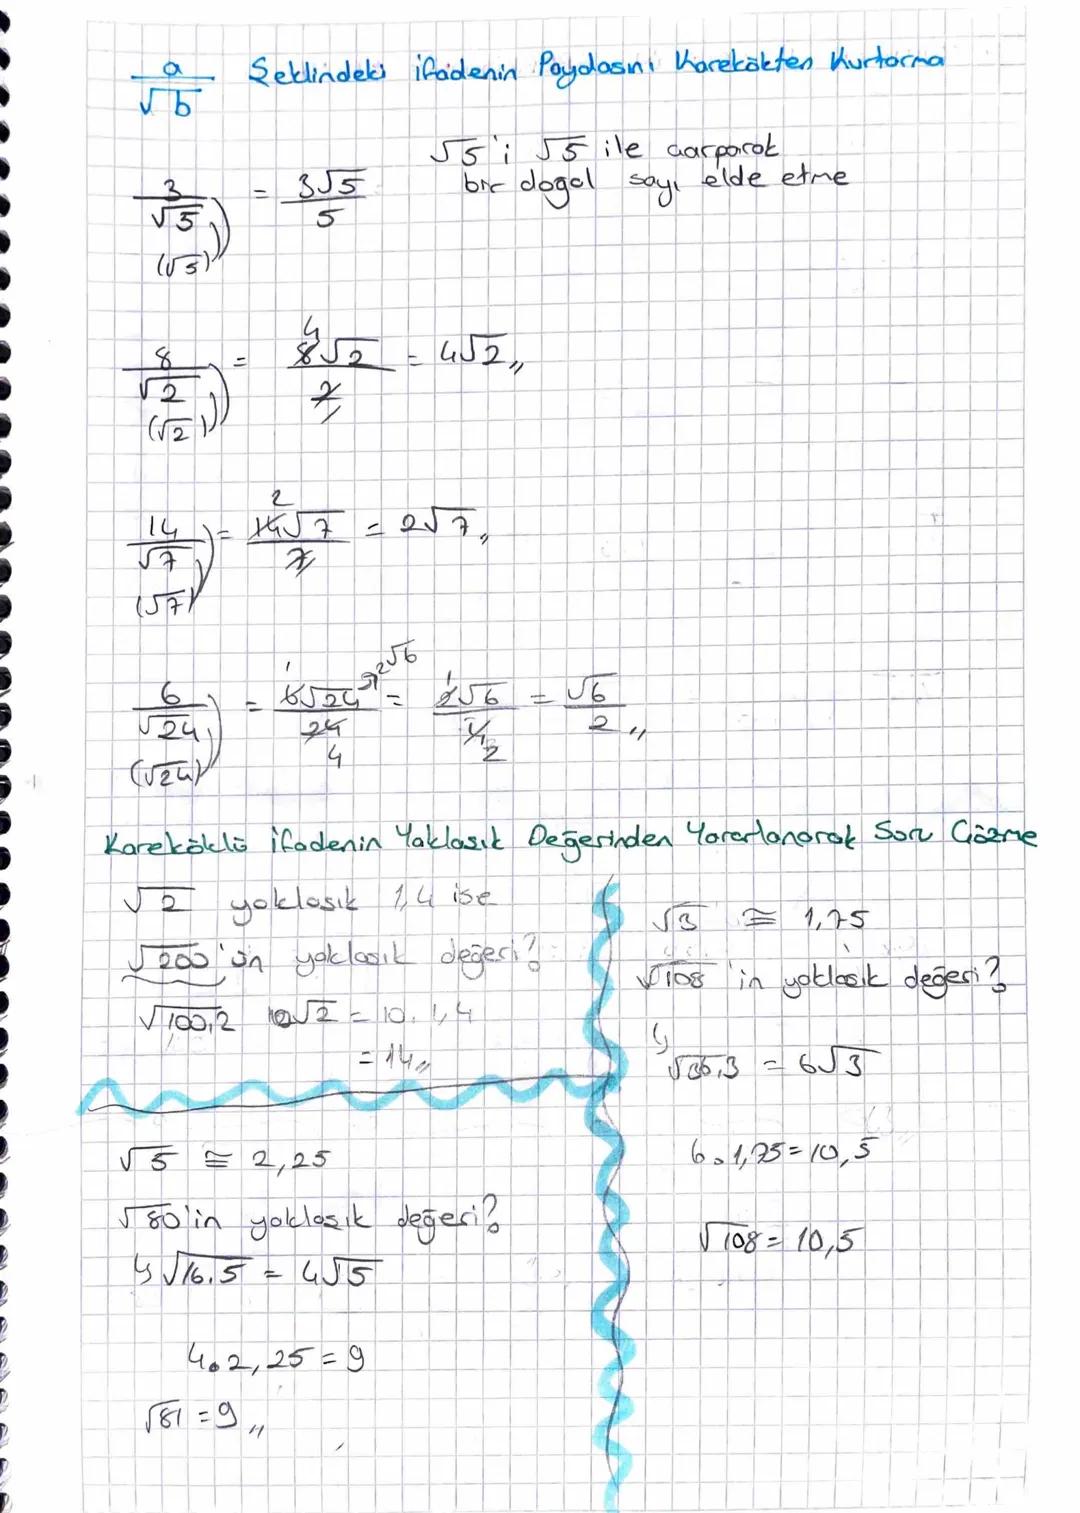 a/√b Şeklindeki ifadenin Paydasını Karekökten Kurtarma
√5'i √5 ile çarparak
bir doğal sayı elde etme
3/√5 (√5) = 3√5/5
8/√2 (√2) = 8√2/2 = 4√2,,
4
14/√7 (√7) = 14√7/7 = 2√7,,
2
6/√24 (√24) = 6√24/24 = 2√6/4 = √6/2,,
1 2√6 1
4 2
Kareköklü ifadenin Yaklaşık Değerinden Yararlanarak Soru Çözme
√2 yaklaşık 1,4 ise
√200'ün yaklaşık değeri?
√100.2 10√2 = 10.1,4
= 14,,
√3 ≅ 1,75
√108'in yaklaşık değeri?
↳ √36.3 = 6√3
6.1,75=10,5
√108 = 10,5
√5 ≅ 2,25
√80'in yaklaşık değeri?
↳ √16.5 = 4√5
4.2,25=9
√81 = 9,,